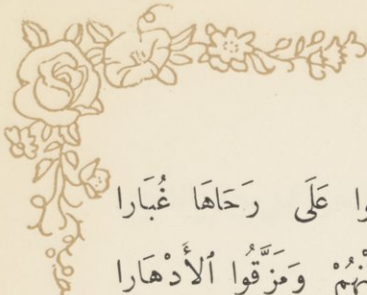 عَلَى رَحَاهَا غُبَارا
وَمَزَّقُوا ٱلأَدْهَارا